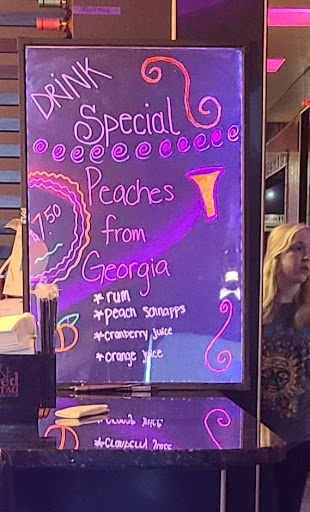 DRINK
Special
Peaches
from
Georgia
$7.50
*rum
*peach schnapps
*cranberry juice
*orange juice